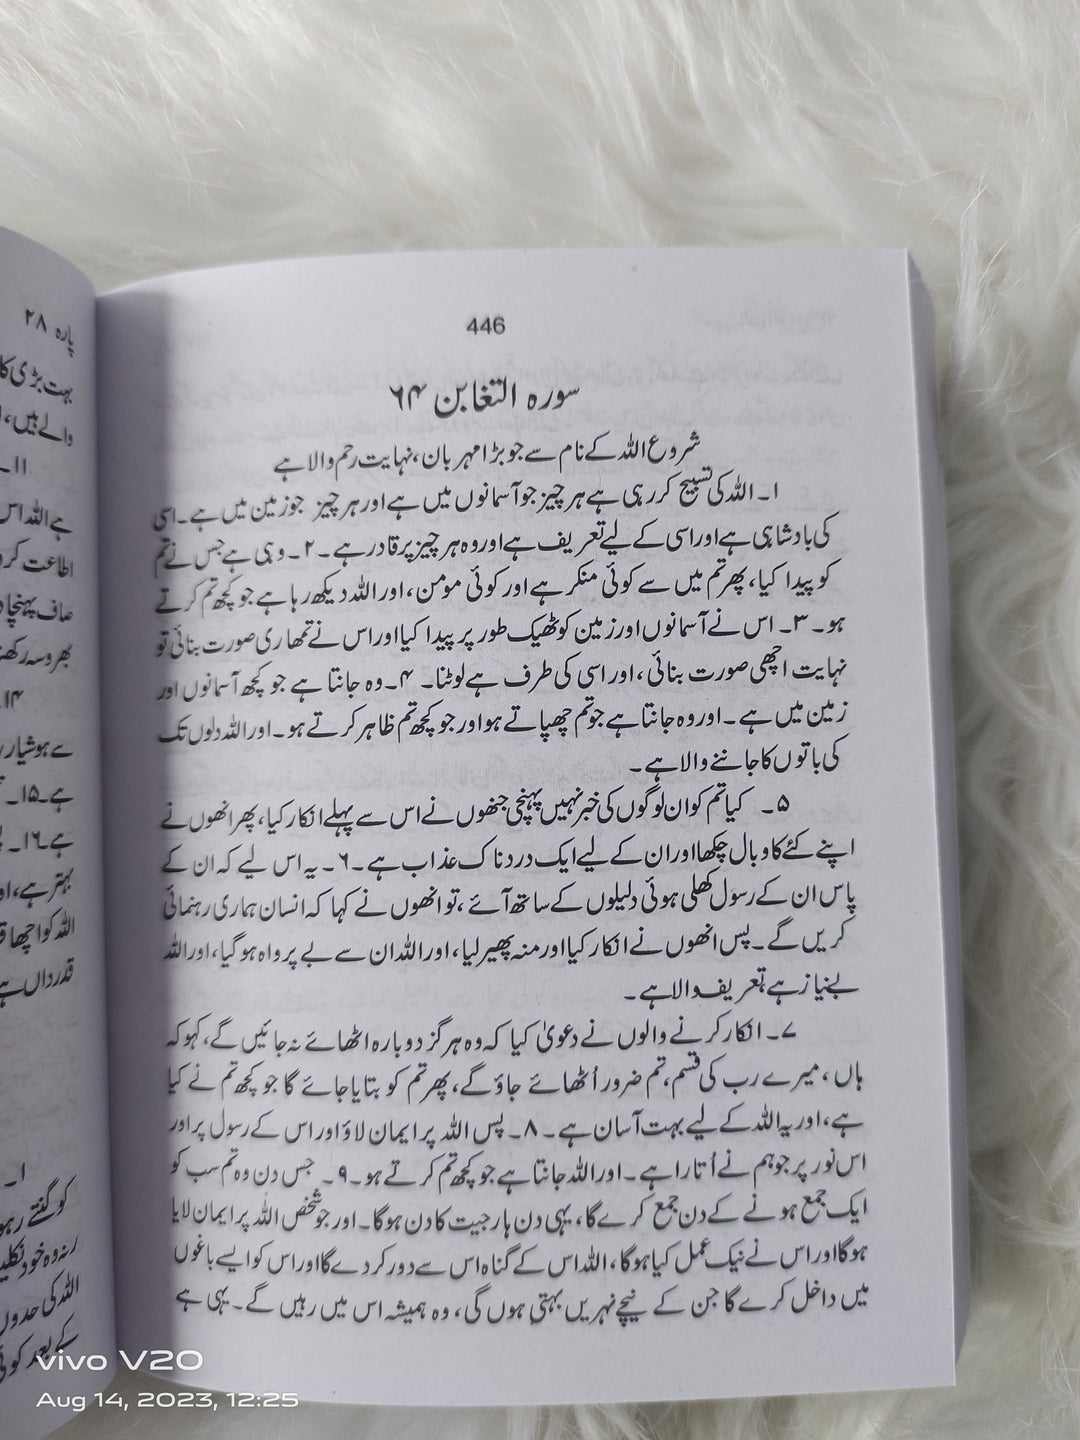 446
سورہ التغابن ۶۴
شروع اللہ کے نام سے جو بڑا مہربان، نہایت رحم والا ہے
۱۔ اللہ کی تسبیح کر رہی ہے ہر چیز جو آسمانوں میں ہے اور ہر چیز جو زمین میں ہے۔ اسی
کی بادشاہی ہے اور اسی کے لیے تعریف ہے اور وہ ہر چیز پر قادر ہے۔ ۲۔ وہی ہے جس نے تم
کو پیدا کیا، پھر تم میں سے کوئی منکر ہے اور کوئی مومن، اور اللہ دیکھ رہا ہے جو کچھ تم کرتے
ہو۔ ۳۔ اس نے آسمانوں اور زمین کو ٹھیک طور پر پیدا کیا اور اس نے تمھاری صورت بنائی تو
نہایت اچھی صورت بنائی، اور اسی کی طرف ہے لوٹنا۔ ۴۔ وہ جانتا ہے جو کچھ آسمانوں اور
زمین میں ہے۔ اور وہ جانتا ہے جو تم چھپاتے ہو اور جو کچھ تم ظاہر کرتے ہو۔ اور اللہ دلوں تک
کی باتوں کا جاننے والا ہے۔
۵۔ کیا تم کو ان لوگوں کی خبر نہیں پہنچی جنھوں نے اس سے پہلے انکار کیا، پھر انھوں نے
اپنے کئے کا وبال چکھا اور ان کے لیے ایک دردناک عذاب ہے۔ ۶۔ یہ اس لیے کہ ان کے
پاس ان کے رسول کھلی ہوئی دلیلوں کے ساتھ آئے، تو انھوں نے کہا کہ انسان ہماری رہنمائی
کریں گے۔ پس انھوں نے انکار کیا اور منہ پھیر لیا، اور اللہ ان سے بے پرواہ ہو گیا، اور اللہ
بے نیاز ہے تعریف والا ہے۔
۷۔ انکار کرنے والوں نے دعویٰ کیا کہ وہ ہرگز دوبارہ اٹھائے نہ جائیں گے، کہو کہ
ہاں، میرے رب کی قسم، تم ضرور اُٹھائے جاؤ گے، پھر تم کو بتایا جائے گا جو کچھ تم نے کیا
ہے، اور یہ اللہ کے لیے بہت آسان ہے۔ ۸۔ پس اللہ پر ایمان لاؤ اور اس کے رسول پر اور
اس نور پر جو ہم نے اُتارا ہے۔ اور اللہ جانتا ہے جو کچھ تم کرتے ہو۔ ۹۔ جس دن وہ تم سب کو
ایک جمع ہونے کے دن جمع کرے گا، یہی دن ہار جیت کا دن ہوگا۔ اور جو شخص اللہ پر ایمان لایا
ہوگا اور اس نے نیک عمل کیا ہوگا، اللہ اس کے گناہ اس سے دور کر دے گا اور اس کو ایسے باغوں
میں داخل کرے گا جن کے نیچے نہریں بہتی ہوں گی، وہ ہمیشہ اس میں رہیں گے۔ یہی ہے
پارہ ۲۸
بہت بڑی
والے ہیں،
۱۱۔
ہے اللہ اس
اطاعت کرو
صاف
بھروسہ
۱۴
سے ہوشیار
ہے۔ ۱۵۔
ہے۔ ۱۶۔
بہتر ہے،
اللہ کو اچھا
قدرداں ہے
۱۔
کو گنتے رہو
نہ وہ خود
اللہ کی حدوں
کے بعد
vivo V20
Aug 14, 2023, 12:25